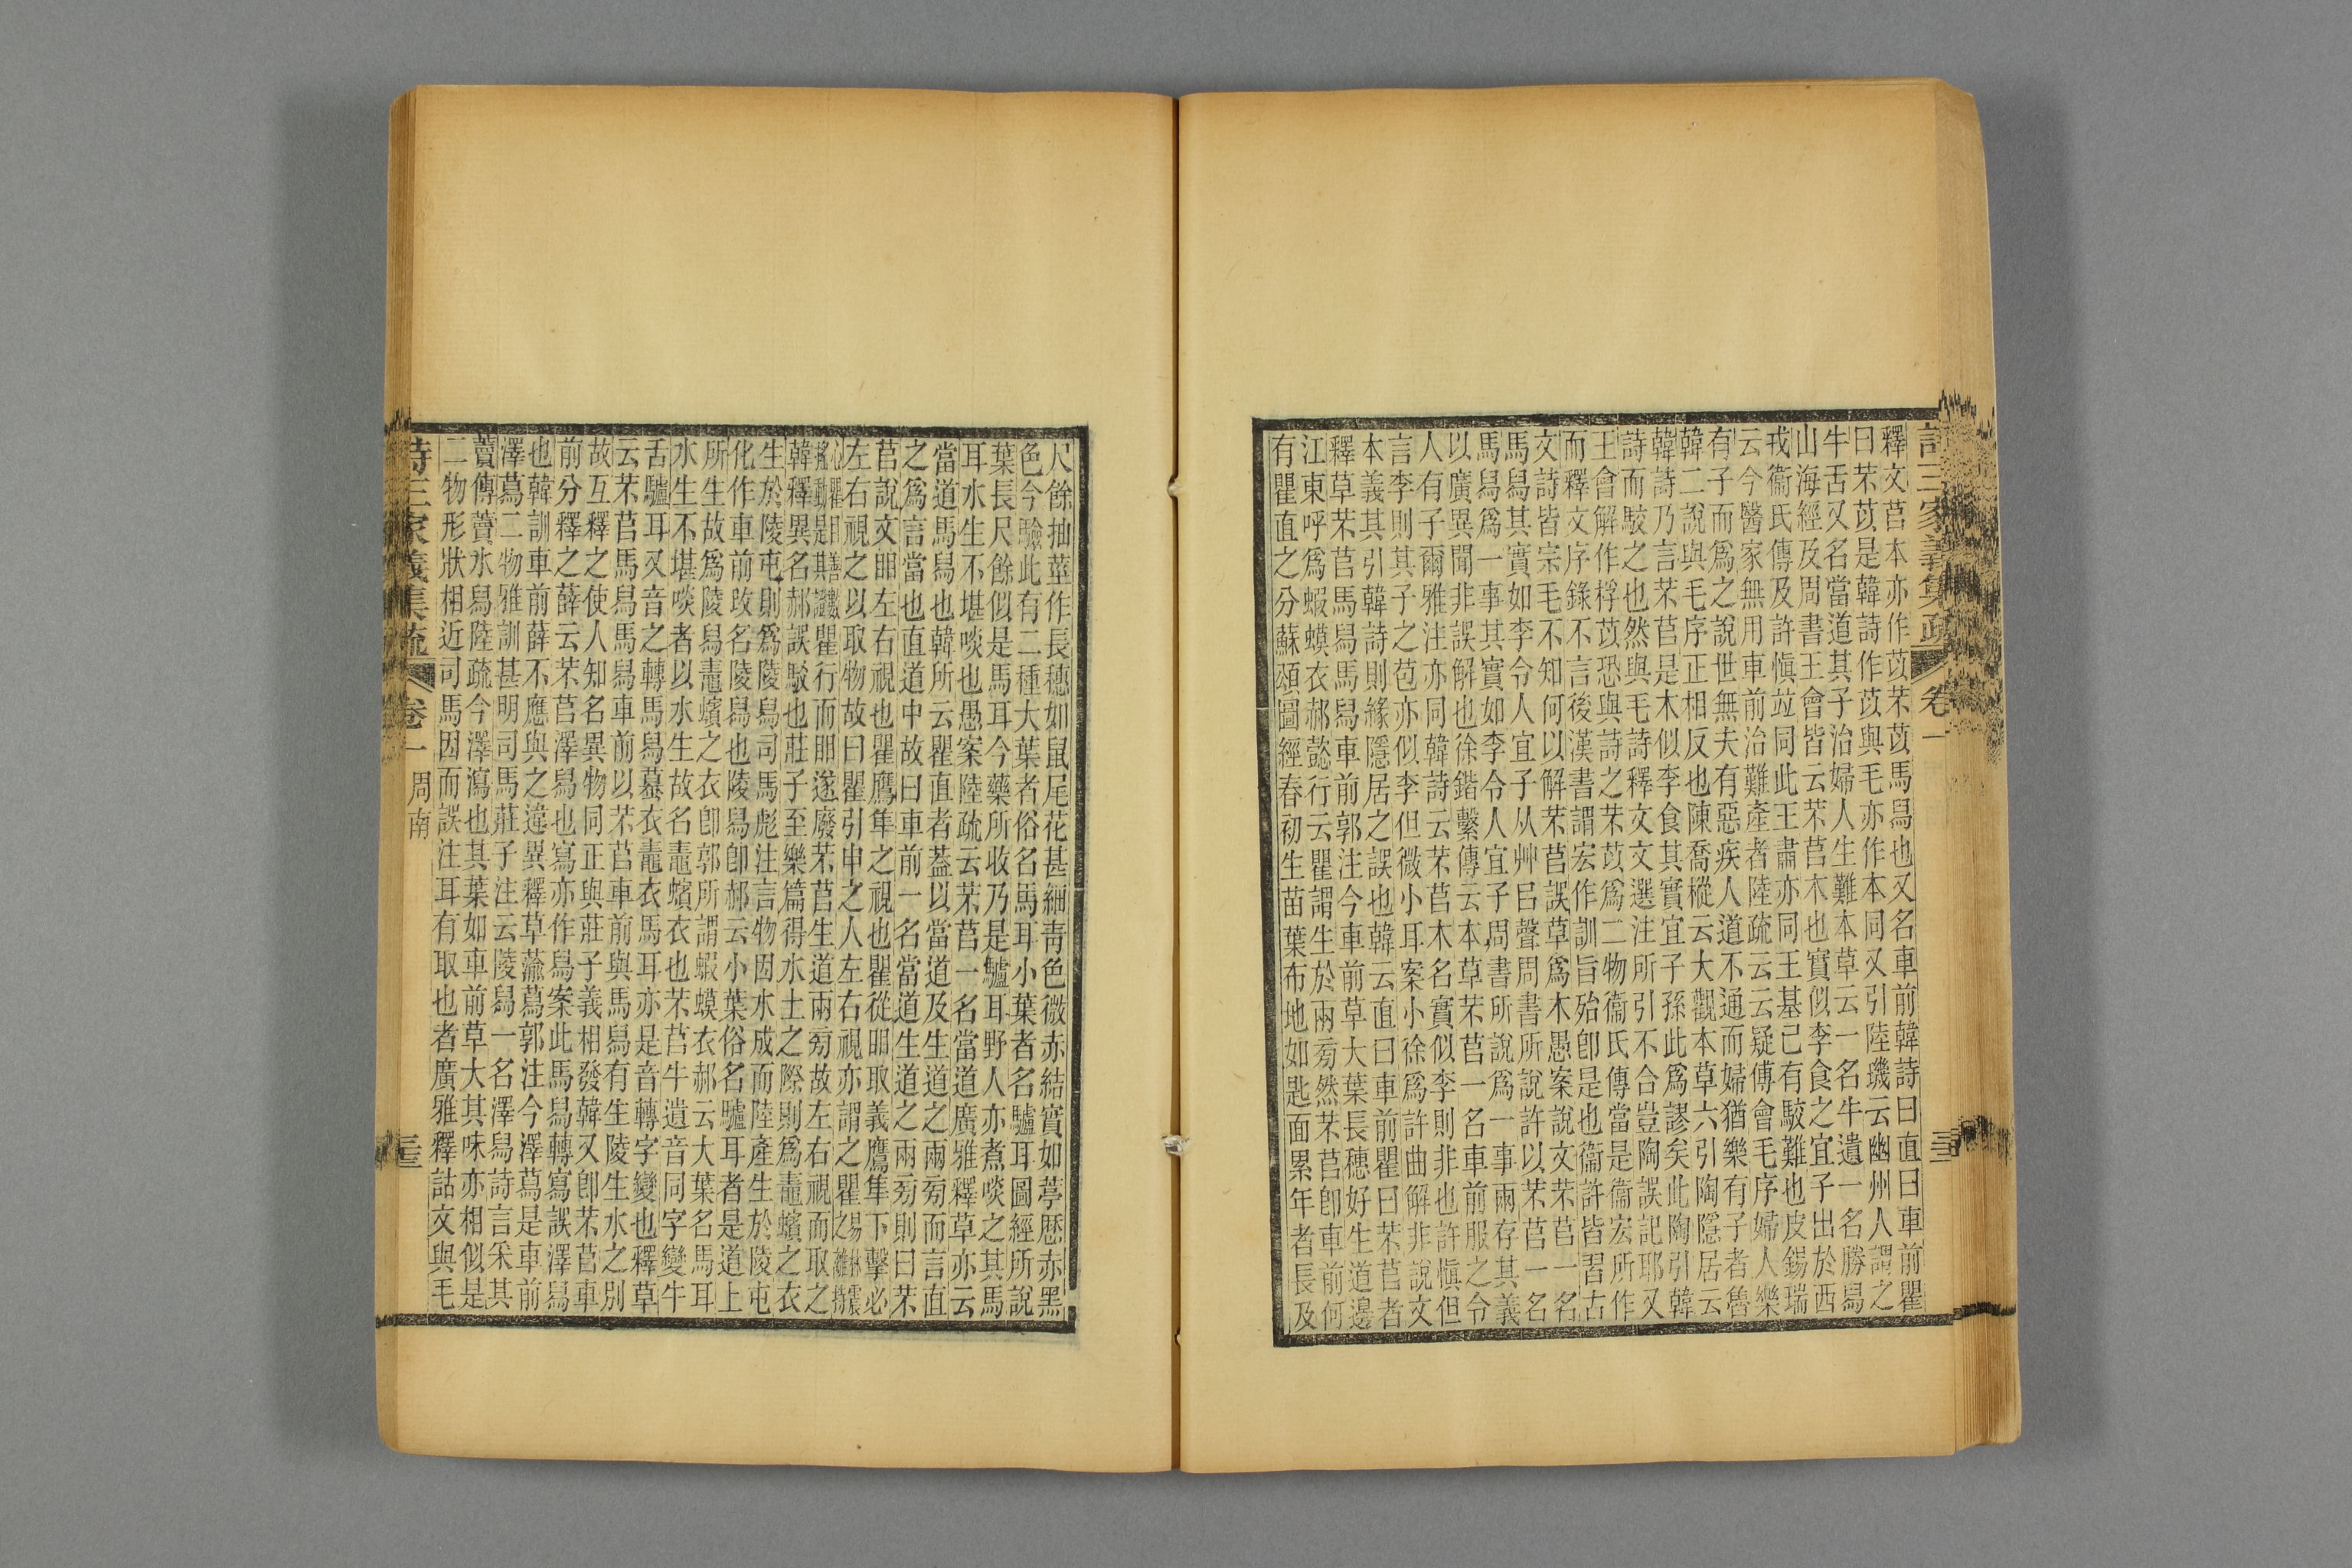 詩三家義集疏 卷一 三三
釋文苢本亦作苡芣苡馬舄也又名車前韓詩曰直曰車前瞿
曰芣苡是韓詩作苡與毛亦作本同又引陸璣云幽州人謂之
牛舌又名當道其子治婦人生難本草云一名牛遺一名勝舄
山海經及周書王會皆云芣苢木也實似李食之宜子出於西
戎衞氏傳及許愼竝同此王肅亦同王基已有駮難也皮錫瑞
云今醫家無用車前治難產者陸疏云云疑傅會毛序婦人樂
有子而爲之說世無夫有惡疾人道不通而婦猶樂有子者魯
韓二說與毛序正相反也陳喬樅云大觀本草六引陶隱居云
韓詩乃言芣苢是木似李食其實宜子孫此爲謬矣此陶引韓
詩而駮之也然與毛詩釋文文選注所引不合豈陶誤記耶又
王會解作桴苡恐與詩之芣苡爲二物衞氏傳當是衞宏所作
而釋文序錄不言後漢書謂宏作訓旨殆卽是也衞許皆習古
文詩皆宗毛不知何以解芣苢誤草爲木愚案說文芣苢一名
馬舄其實如李令人宜子从艸㠯聲周書所說許以芣苢一名
馬舄爲一事其實如李令人宜子周書所說爲一事兩存其義
以廣異聞非誤解也徐鍇繫傳云本草芣苢一名車前服之令
人有子爾雅注亦同韓詩云芣苢木名實似李則非也許愼但
言李則其子之苞亦似李但微小耳案小徐爲許曲解非說文
本義其引韓詩則緣隱居之誤也韓云直曰車前瞿曰芣苢者
釋草芣苢馬舄馬舄車前郭注今車前草大葉長穗好生道邊
江東呼爲蝦蟆衣郝懿行云瞿謂生於兩旁然芣苢卽車前何
有瞿直之分蘇頌圖經春初生苗葉布地如匙面累年者長及
尺餘抽莖作長穗如鼠尾花甚細靑色微赤結實如葶歷赤黑
色今驗此有二種大葉者俗名馬耳小葉者名驢耳圖經所說
葉長尺餘似是馬耳今藥所收乃是驢耳野人亦煮啖之其馬
耳水生不堪啖也愚案陸疏云芣苢一名當道廣雅釋草亦云
當道馬舄也韓所云瞿直者蓋以當道及生道之兩旁而言直
之爲言當也直道中故曰車前一名當道生道之兩旁則曰芣
苢說文䀠左右視也瞿鷹隼之視也瞿從䀠取義鷹隼下擊必
左右視之以取物故曰瞿引申之人左右視亦謂之瞿易林震之離持
心瞿目善數搖動是其證瞿行而䀠遂廢芣苢生道兩旁故左右視而取之
韓釋異名郝誤駮也莊子至樂篇得水土之際則爲鼃蠙之衣
生於陵屯則爲陵舄司馬彪注言物因水成而陸產生於陵屯
化作車前改名陵舄也陵舄卽郝云小葉俗名驢耳者是道上
所生故爲陵舄鼃蠙之衣卽郭所謂蝦蟆衣郝云大葉名馬耳
水生不堪啖者以水生故名鼃蠙衣也芣苢牛遺音同字變牛
舌驢耳又音之轉馬舄蟇衣鼃衣馬耳亦是音轉字變也釋草
云芣苢馬舄馬舄車前以芣苢車前與馬舄有生陵生水之別
故互釋之使人知名異物同正與莊子義相發韓又卽芣苢車
前分釋之薛云芣苢澤舄也寫亦作舄案此馬舄轉寫誤澤舄
也韓訓車前薛不應與之違異釋草蕍蕮郭注今澤蕮是車前
澤蕮二物雅訓甚明司馬莊子注云陵舄一名澤舄詩言采其
藚傳藚水舄陸疏今澤瀉也其葉如車前草大其味亦相似是
二物形狀相近司馬因而誤注耳有取也者廣雅釋詁文與毛
詩三家義集疏 卷一 周南 三三